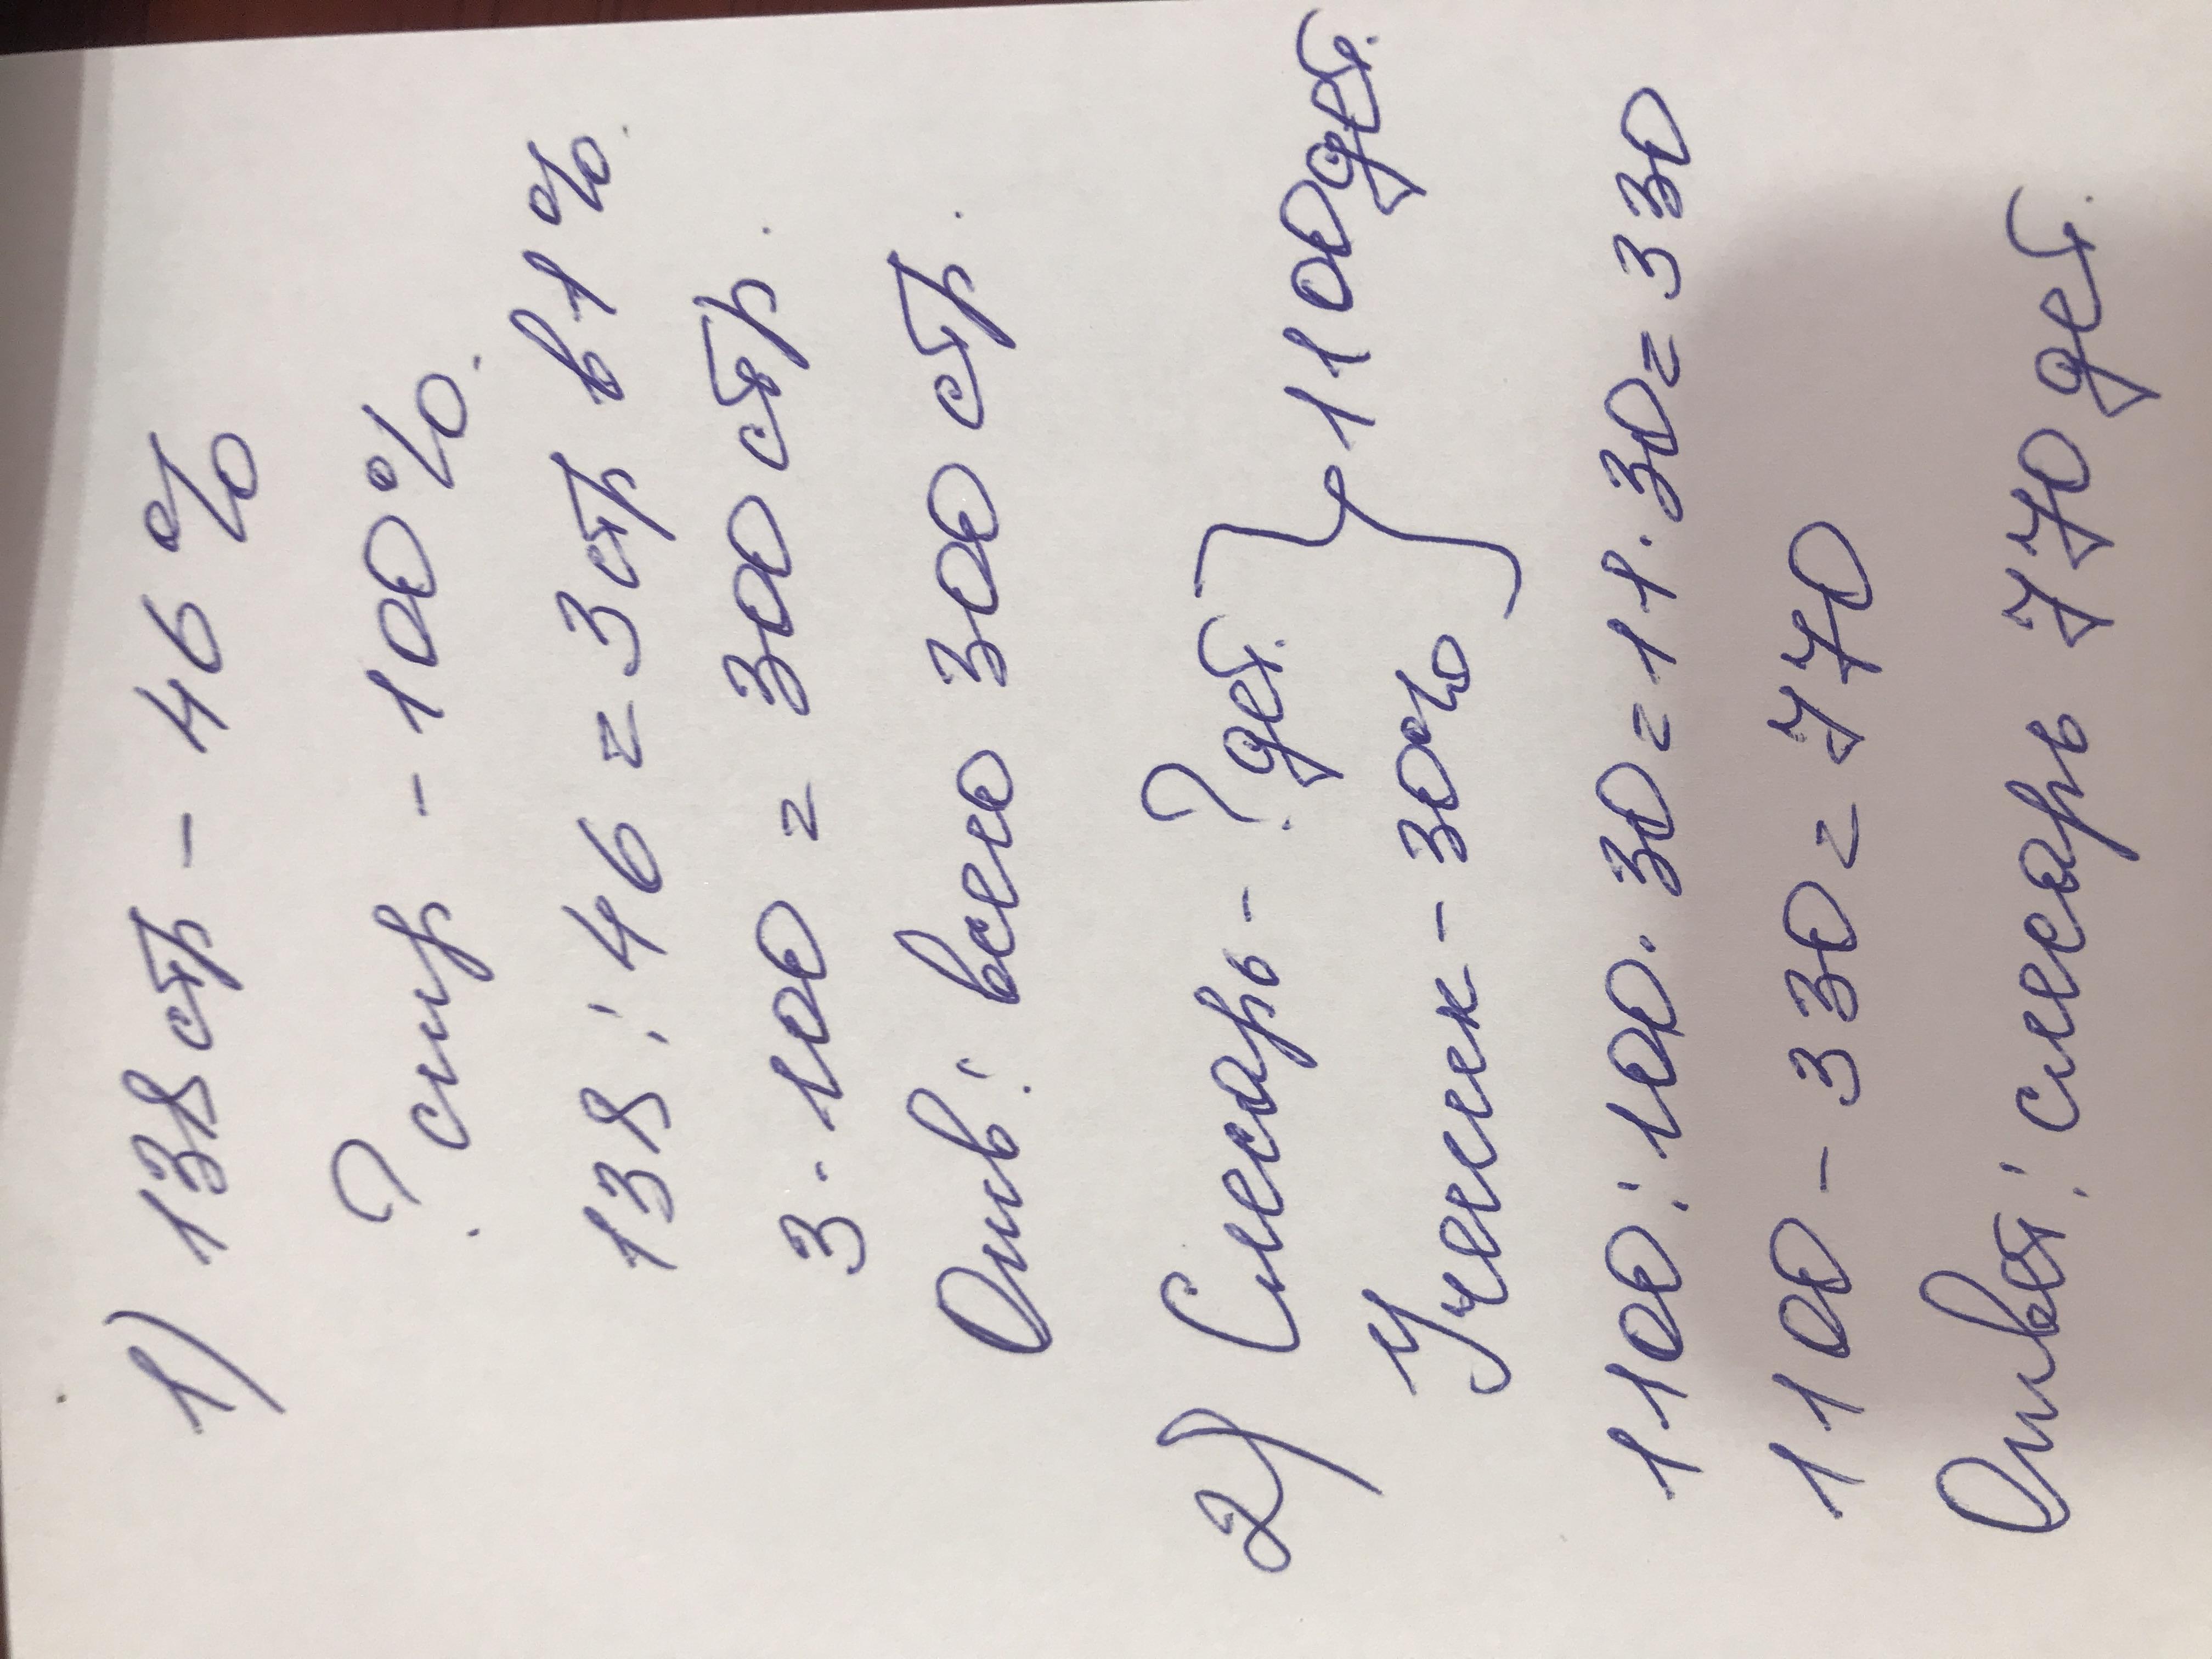 1) 138 стр - 46%
? стр - 100%.
138 : 46 = 3 стр в 1%.
3 · 100 = 300 стр.
Отв: всего 300 стр.
2) Слесарь - ? дет. } 1100 дет.
Ученик - 30%
1100 : 100 · 30 = 11 · 30 = 330
1100 - 330 = 770
Ответ: слесарь 770 дет.